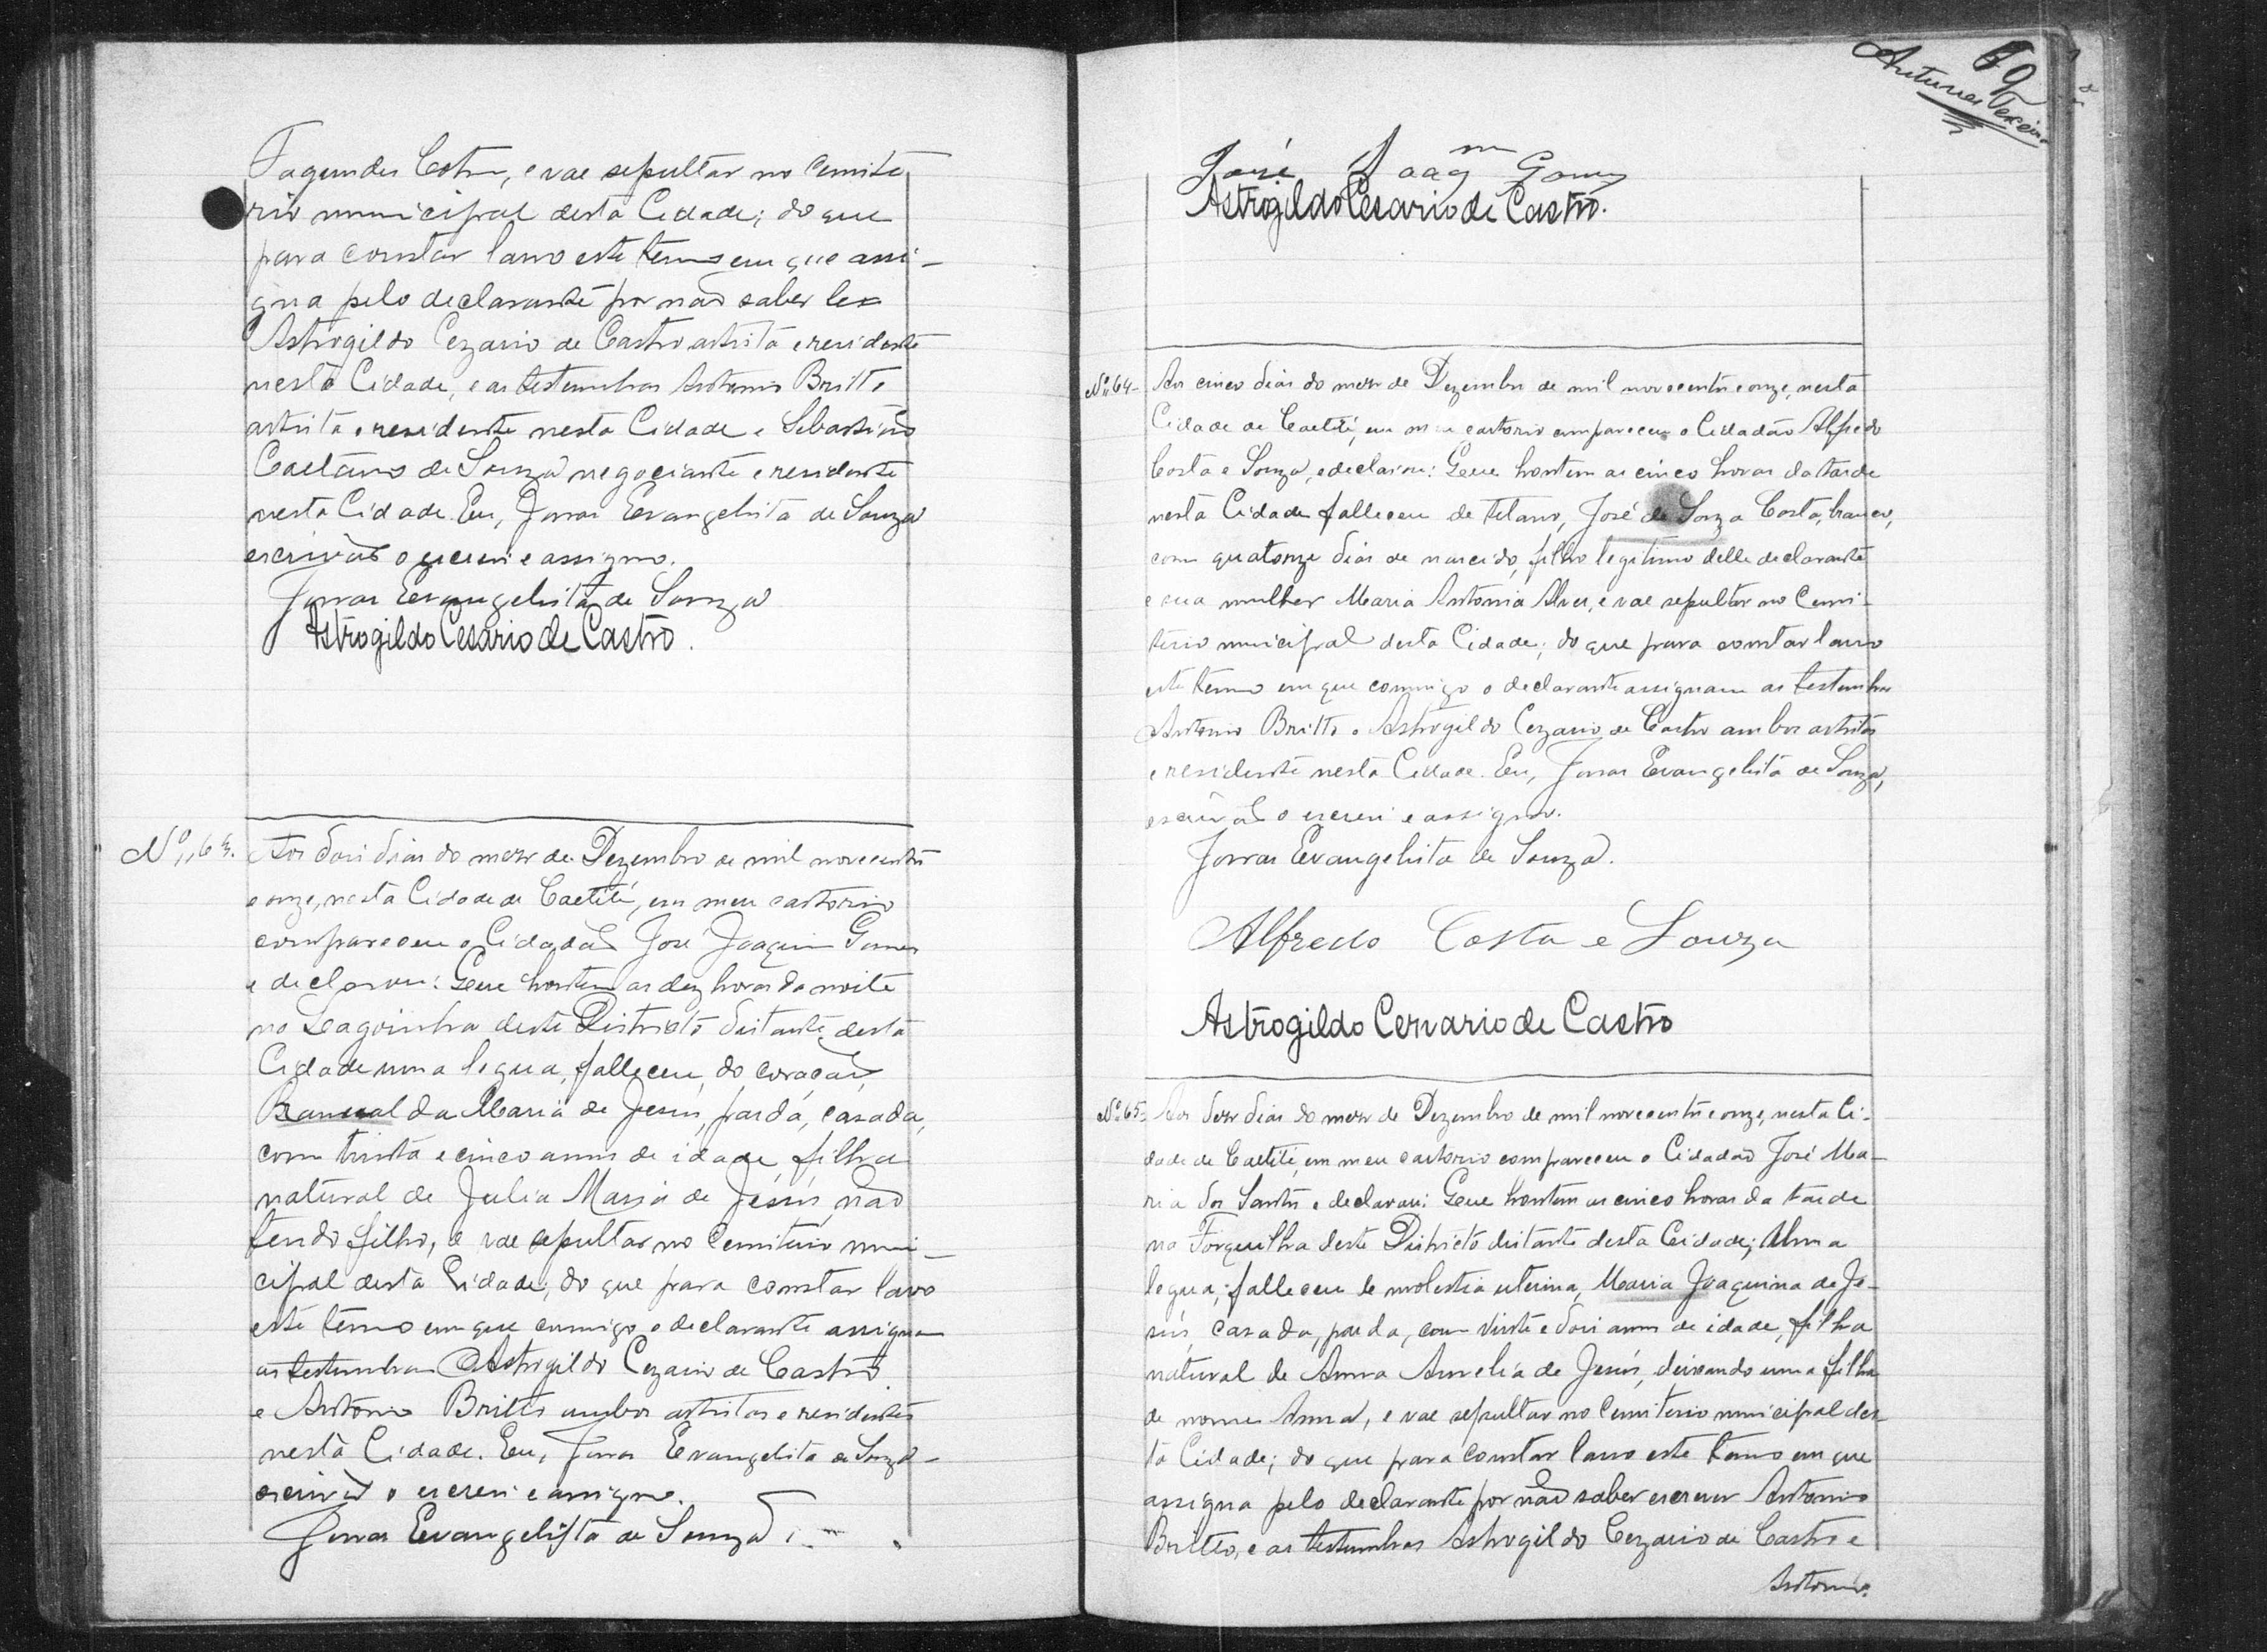 Fagundes Cotrim, e vae sepultar no Cemite
rio municipal desta Cidade; do que
para constar lavro este termo em que assi-
gna pelo declarante por não saber ler
Astrogildo Cezario de Castro artista e residente
nesta Cidade, e as testemunhas Antonio Britto
artista e residente nesta Cidade e Sebastião
Caetano de Souza negociante e residente
nesta Cidade. Eu, Jonas Evangelista de Souza
escrivão o escrevi e assigno.
Jonas Evangelista de Souza
Astrogildo Cesario de Castro.
Nº,,63. Aos dois dias do mez de Dezembro de mil novecentos
e onze, nesta Cidade de Caetité, em meu cartorio
compareceu o Cidadão José Joaquim Gomes
e declarou: Que hontem as dez horas da noite
no Lagoinha deste Districto distante desta
Cidade uma legua, falleceu, do coração,
da Maria de Jesus, parda, casada,
com trinta e cinco annos de idade filha
natural de Julia Maria de Jesus, não
tendo filho, e vae sepultar no Cemiterio muni-
cipal desta Cidade; do que para constar lavro
este termo em que comigo o declarante assignam
as testemunhas Astrogildo Cezario de Castro
e Antonio Britto ambos artistas e residentes
nesta Cidade. Eu, Jonas Evangelista de Souza-
escrivão o escrevi e assigno.
Jonas Evangelista de Souza
69
Antunes Teixeira
José Joaqm Gomes
Astrogildo Cesario de Castro.
Nº,,64- Aos cinco dias do mez de Dezembro de mil novecentos e onze, nesta
Cidade de Caetité, em meu cartorio compareceu o Cidadão Alfredo
Costa e Souza, e declarou: Que hontem as cinco horas da tarde
nesta Cidade falleceu de tetano, José de Souza Costa, branco,
com quatorze dias de nascido, filho legitimo delle declarante
e sua mulher Maria Antonia Alves, e vae sepultar no Cemi-
terio municipal desta Cidade; do que para constar lavro
este termo em que commigo o declarante assignam as testemunhas
Antonio Britto e Astrogildo Cezario de Castro ambos artistas
e residente nesta Cidade. Eu, Jonas Evangelista de Souza,
escrivão o escrevi e assigno.
Jonas Evangelista de Souza.
Alfredo Costa e Souza
Astrogildo Cezario de Castro
Nº 65- Aos doze dias do mez de Dezembro de mil novecentos e onze, nesta Ci-
dade de Caetité, em meu cartorio compareceu o Cidadão José Ma-
ria dos Santos e declarou: Que hontem as cinco horas da tarde
na Forquilha deste Districto distante desta Cidade; uma
legua; falleceu de molestia uterina, Maria Joaquina de Je-
sus, casada, parda, com vinte e dois annos de idade, filha
natural de Anna Aurelia de Jesus, deixando uma filha
de nome Anna, e vae sepultar no Cemiterio municipal des-
ta Cidade; do que para constar lavro este termo em que
assigna pelo declarante por não saber escrever Antonio
Britto, e as testemunhas Astrogildo Cezario de Castro e
Antonio